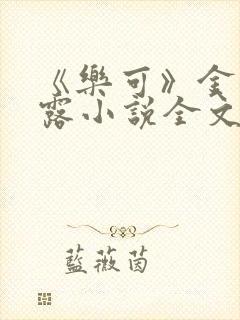 《樂可》金
露小説全文
藍薇茵